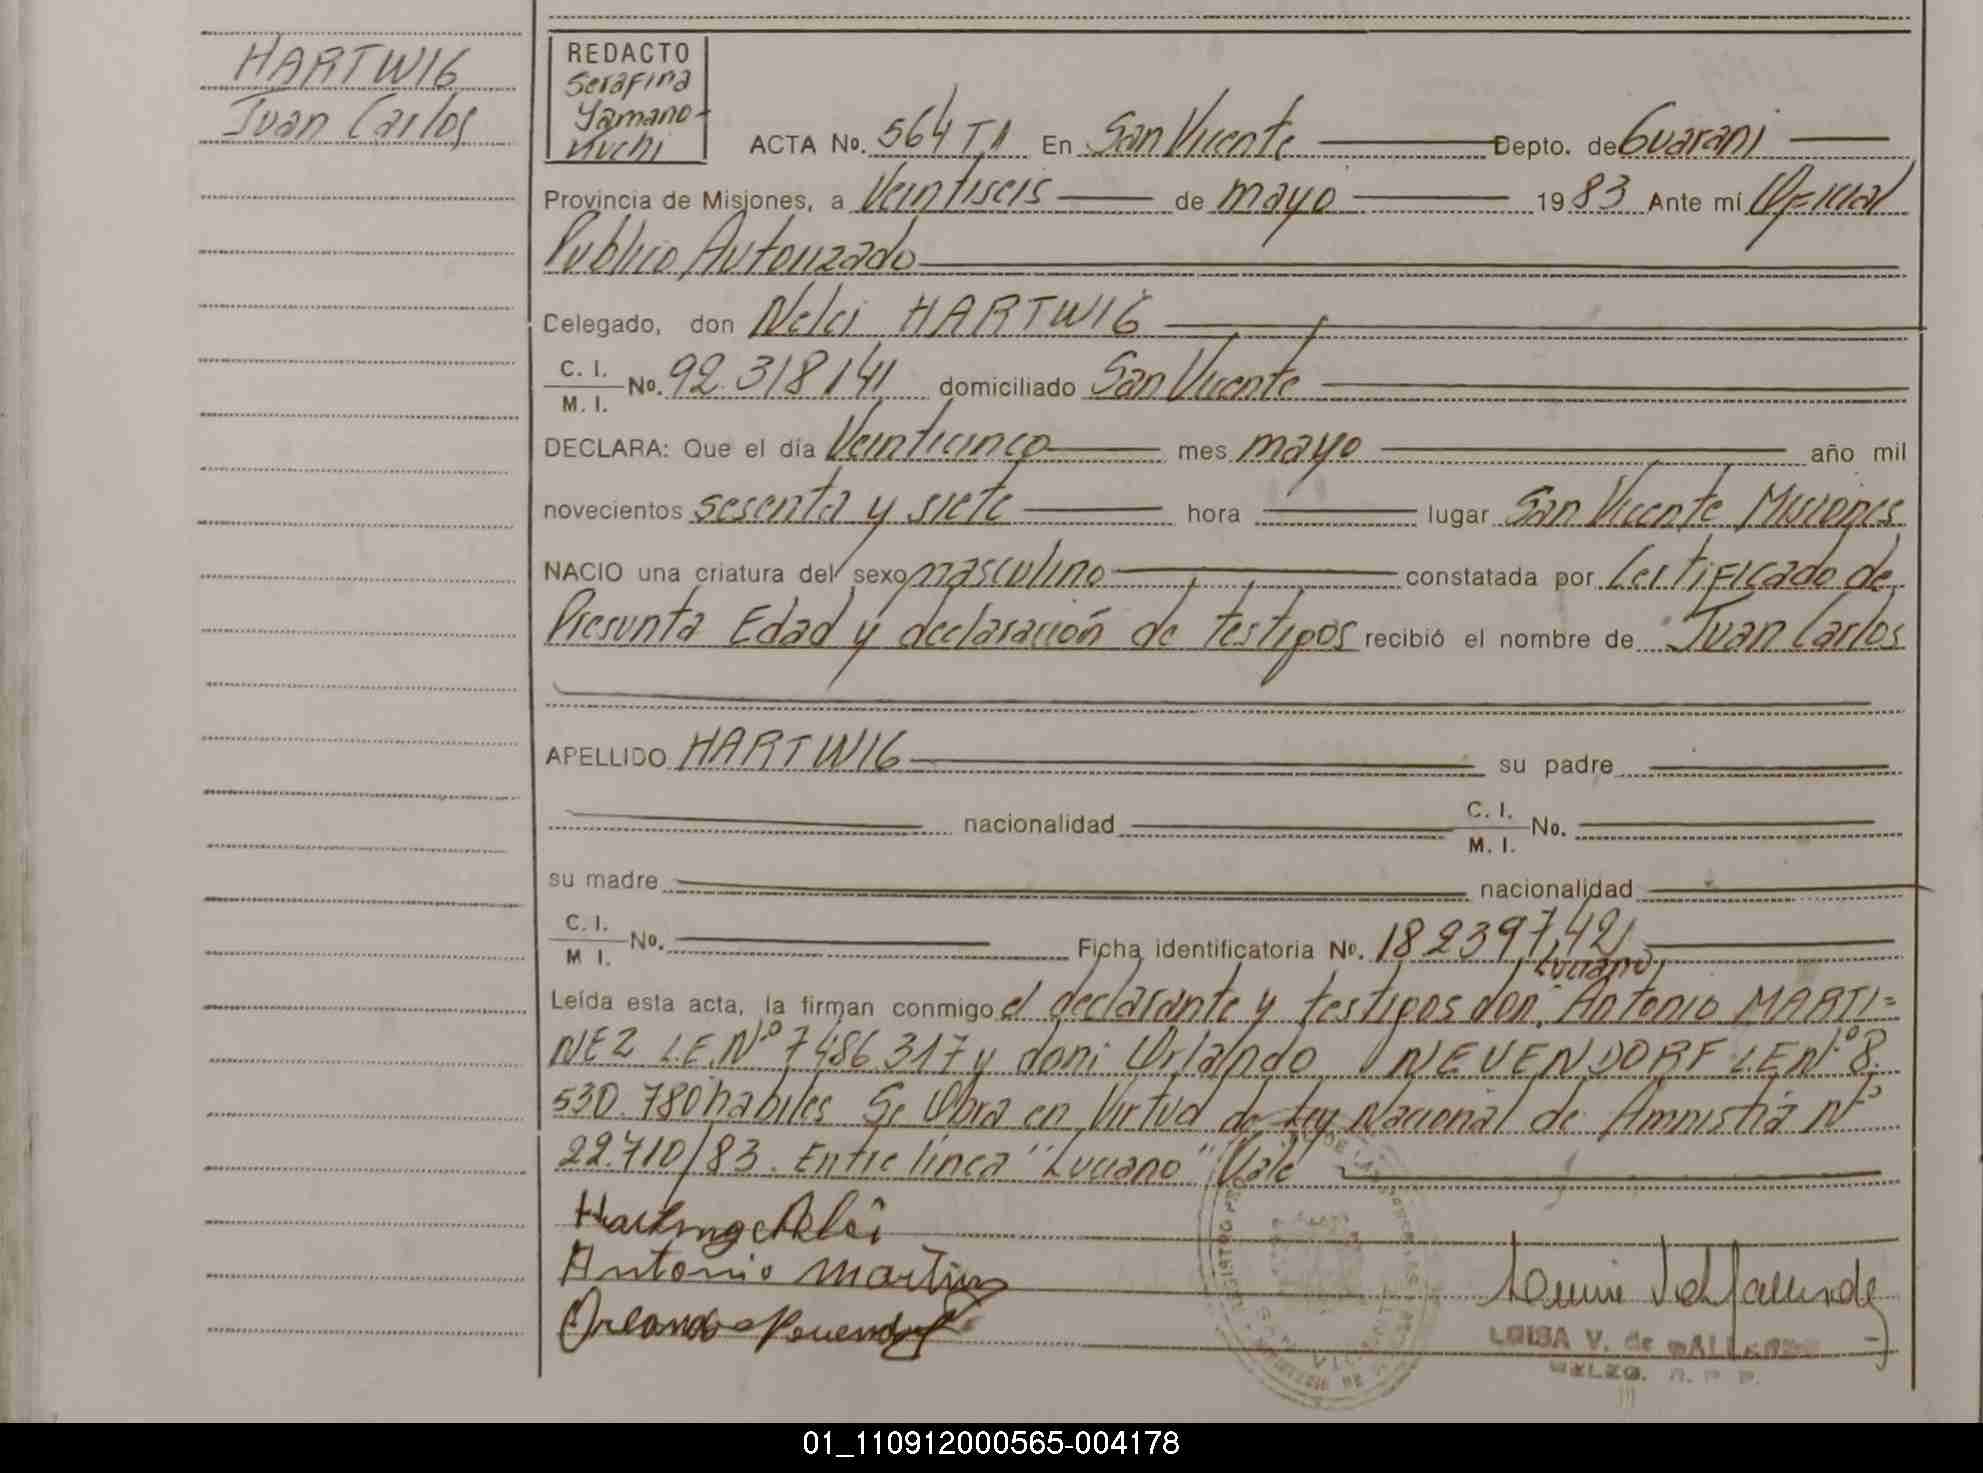 HARTWIG
Juan Carlos
REDACTO
Serafina
Yamano-
kuchi
ACTA No. 564 T1 En San Vicente Depto. de Guarani
Provincia de Misiones, a Veintiseis de mayo 1983 Ante mí Oficial
Publico Autorizado
Celegado, don Nelci HARTWIG
C. I.
M. I. No. 92.318141 domiciliado San Vicente
DECLARA: Que el día Veinticinco mes mayo año mil
novecientos sesenta y siete hora lugar San Vicente Misiones
NACIO una criatura del sexo masculino constatada por Certificado de
Presunta Edad y declaración de testigos recibió el nombre de Juan Carlos
APELLIDO HARTWIG su padre
nacionalidad C. I.
M. I. No.
su madre nacionalidad
C. I.
M I. No. Ficha identificatoria No. 182397,42
Luciano
Leída esta acta, la firman conmigo el declarante y testigos don, Antonio MARTI=
NEZ L.E.Nº 7486.317 y doni Orlando NEUENDORF L.E.Nº 8.
530.780 habiles Se Obra en Virtud de Ley Nacional de Amnistia Nº
22.710/83. Entre linea "Luciano" Vale
Hartwig Nelci
Antonio Martinez
Orlando Neuendorf
LUISA V. de GALLARDO
01_110912000565-004178